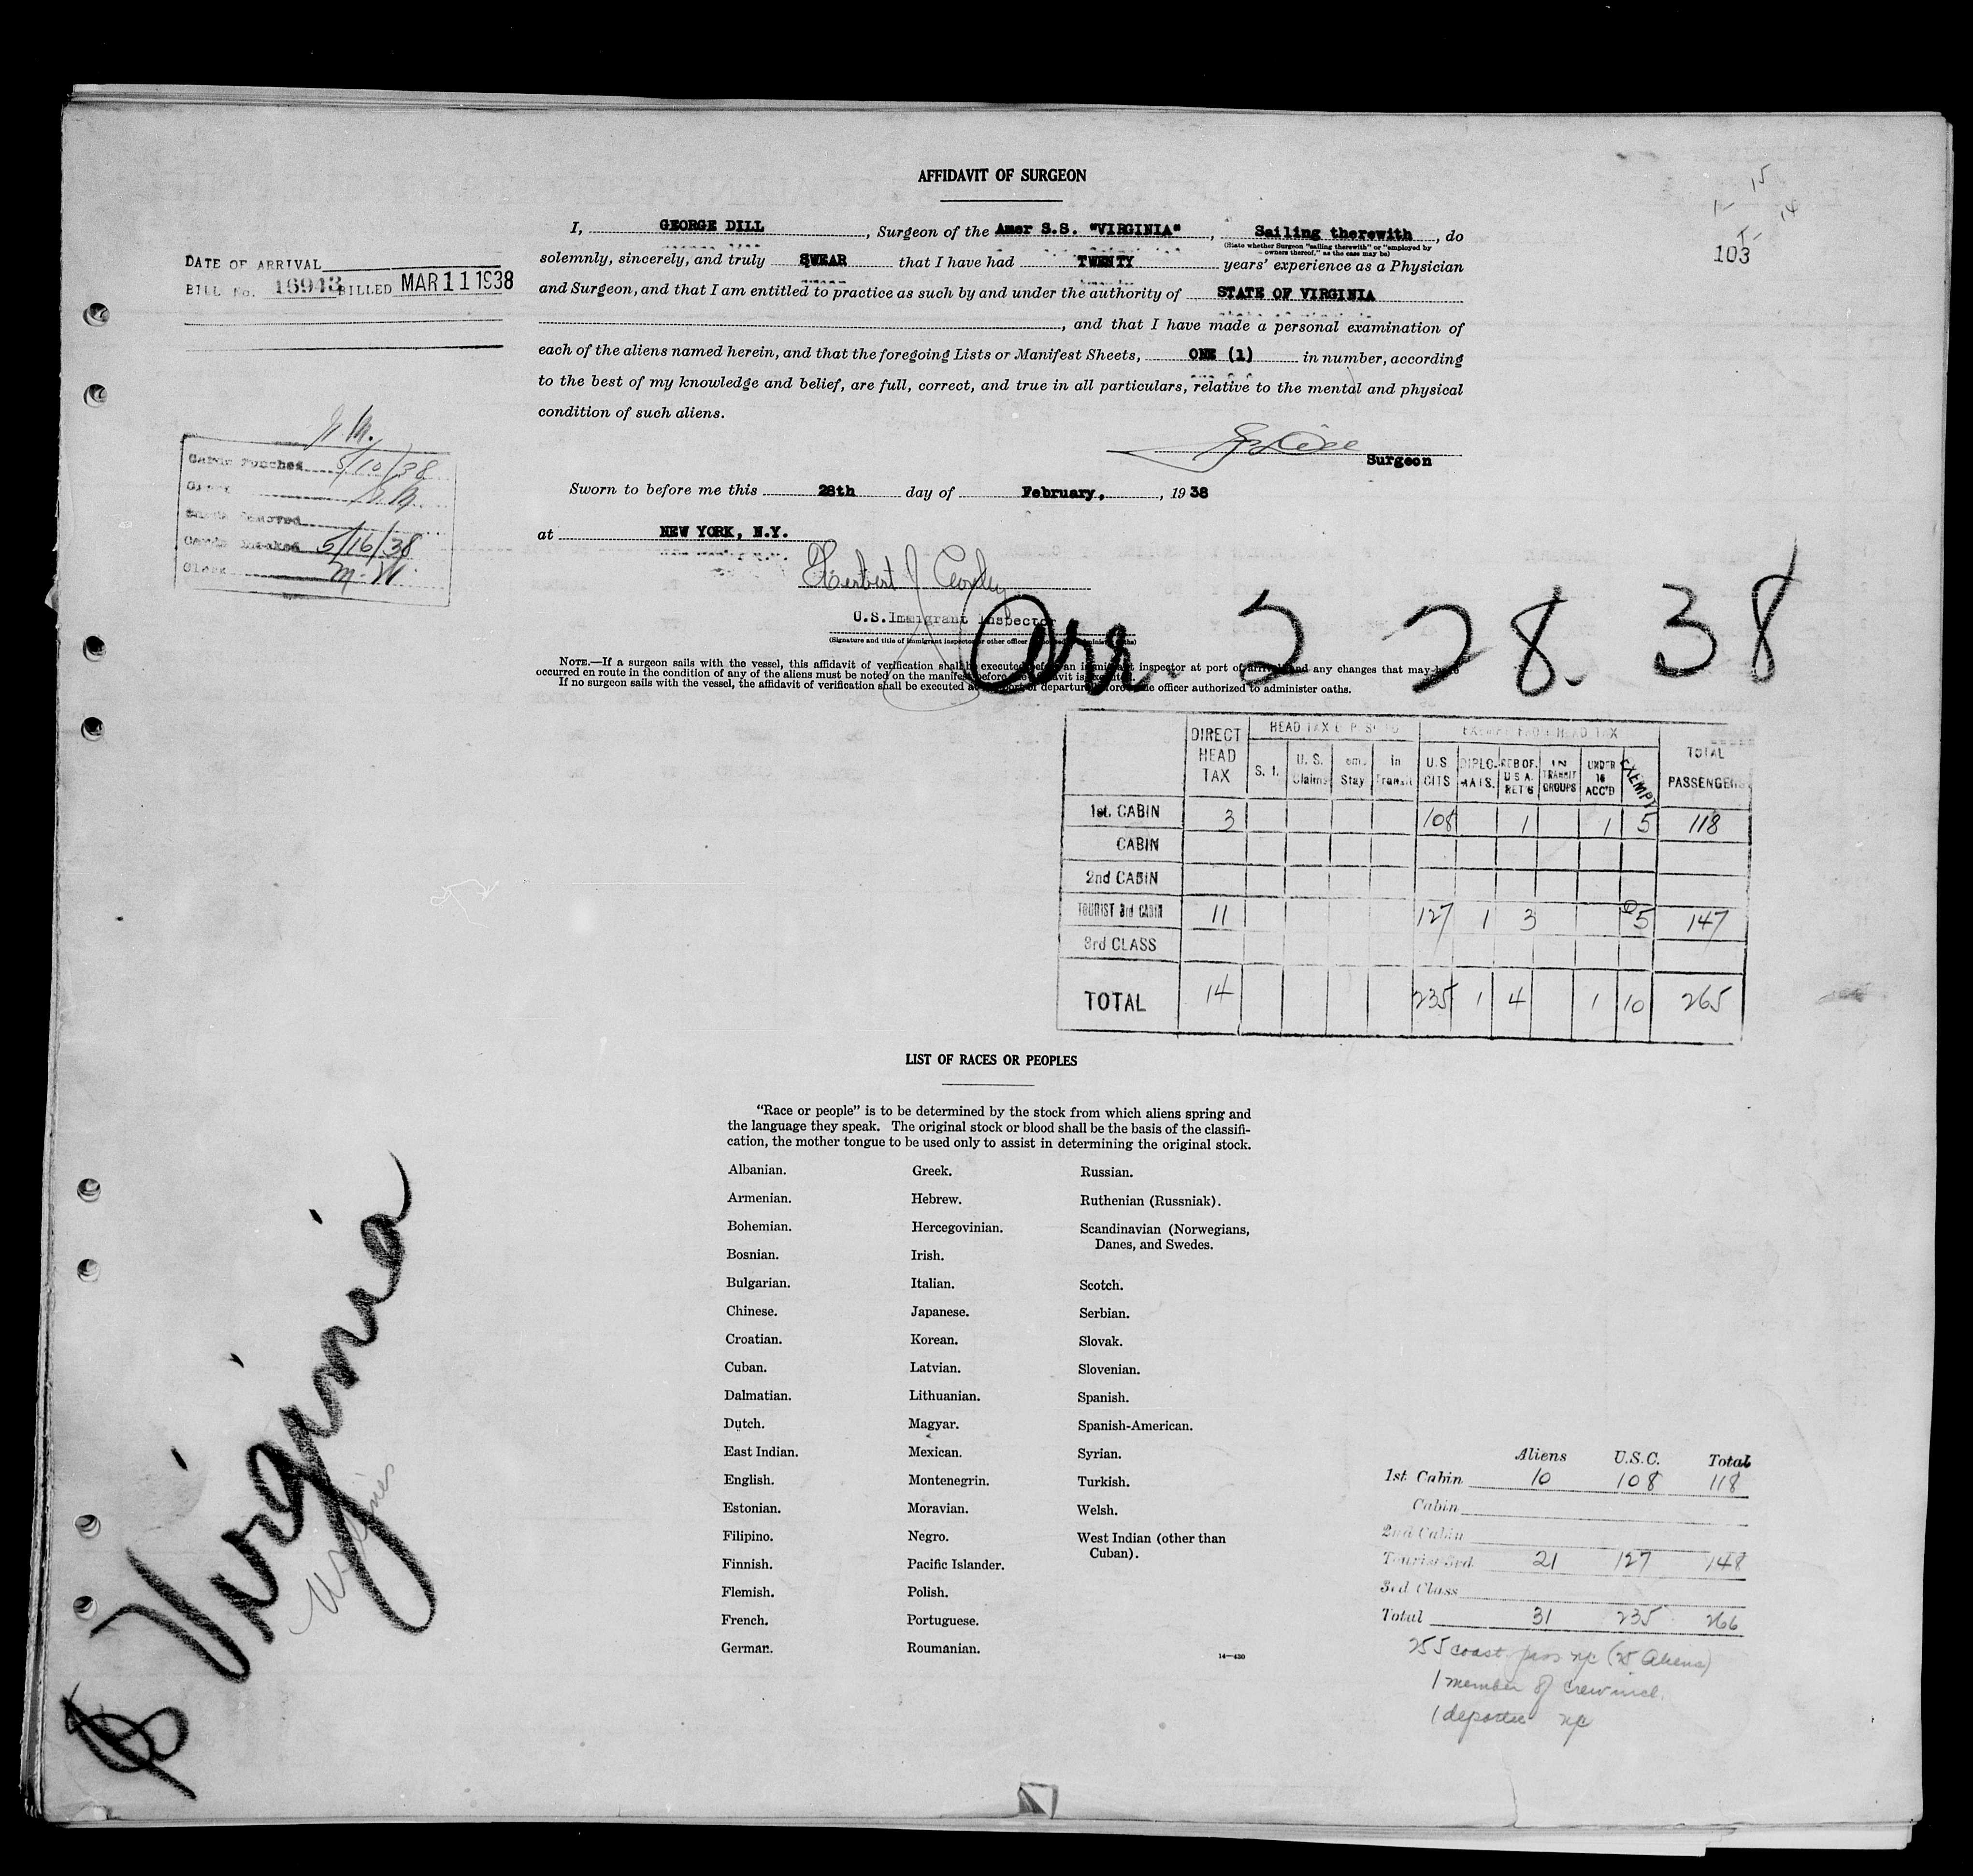 AFFIDAVIT OF SURGEON
15
14
103
I, GEORGE DILL, Surgeon of the Amer S.S. "VIRGINIA", Sailing therewith, do
(State whether Surgeon "sailing therewith" or "employed by
owners thereof," as the case may be)
solemnly, sincerely, and truly SWEAR that I have had TWENTY years' experience as a Physician
and Surgeon, and that I am entitled to practice as such by and under the authority of STATE OF VIRGINIA
, and that I have made a personal examination of
each of the aliens named herein, and that the foregoing Lists or Manifest Sheets, ONE (1) in number, according
to the best of my knowledge and belief, are full, correct, and true in all particulars, relative to the mental and physical
condition of such aliens.
Surgeon
Sworn to before me this 28th day of February, , 19 38
at NEW YORK, N.Y.
Herbert J
U.S. Immigrant Inspector
(Signature and title of immigrant inspector or other officer authorized to administer oaths)
Arr. 2 28. 38
NOTE.—If a surgeon sails with the vessel, this affidavit of verification shall be executed before an immigrant inspector at port of arrival and any changes that may be
occurred en route in the condition of any of the aliens must be noted on the manifest before the affidavit is executed.
If no surgeon sails with the vessel, the affidavit of verification shall be executed at the port of departure before some officer authorized to administer oaths.
DATE OF ARRIVAL
BILL No. 16943 BILLED MAR 11 1938
Cards Punched 5/10/38
Clerk
Cards Checked 5/16/38
Clerk M. W.
DIRECT HEAD TAX
HEAD TAX DEPOSITS
EXEMPT FROM HEAD TAX
TOTAL PASSENGERS
S. I. U. S. Claims Tem. Stay In Transit U.S CITS DIPLO-MATS. RES OF. U S A. RET'G IN TRANSIT GROUPS UNDER 16 ACC'D EXEMPT
1st. CABIN 3 108 1 1 5 118
CABIN
2nd CABIN
TOURIST 3rd CABIN 11 127 1 3 5 147
3rd CLASS
TOTAL 14 235 1 4 1 10 265
LIST OF RACES OR PEOPLES
"Race or people" is to be determined by the stock from which aliens spring and
the language they speak. The original stock or blood shall be the basis of the classifi-
cation, the mother tongue to be used only to assist in determining the original stock.
Albanian.
Armenian.
Bohemian.
Bosnian.
Bulgarian.
Chinese.
Croatian.
Cuban.
Dalmatian.
Dutch.
East Indian.
English.
Estonian.
Filipino.
Finnish.
Flemish.
French.
German.
Greek.
Hebrew.
Hercegovinian.
Irish.
Italian.
Japanese.
Korean.
Latvian.
Lithuanian.
Magyar.
Mexican.
Montenegrin.
Moravian.
Negro.
Pacific Islander.
Polish.
Portuguese.
Roumanian.
Russian.
Ruthenian (Russniak).
Scandinavian (Norwegians,
Danes, and Swedes.
Scotch.
Serbian.
Slovak.
Slovenian.
Spanish.
Spanish-American.
Syrian.
Turkish.
Welsh.
West Indian (other than
Cuban).
14—430
Virginia
Aliens U.S.C. Total
1st Cabin 10 108 118
Cabin
2nd Cabin
Tourist 3rd 21 127 148
3rd Class
Total 31 235 266
255 coast pass n/c (25 Aliens)
1 member of crew incl.
1 deportee n/c